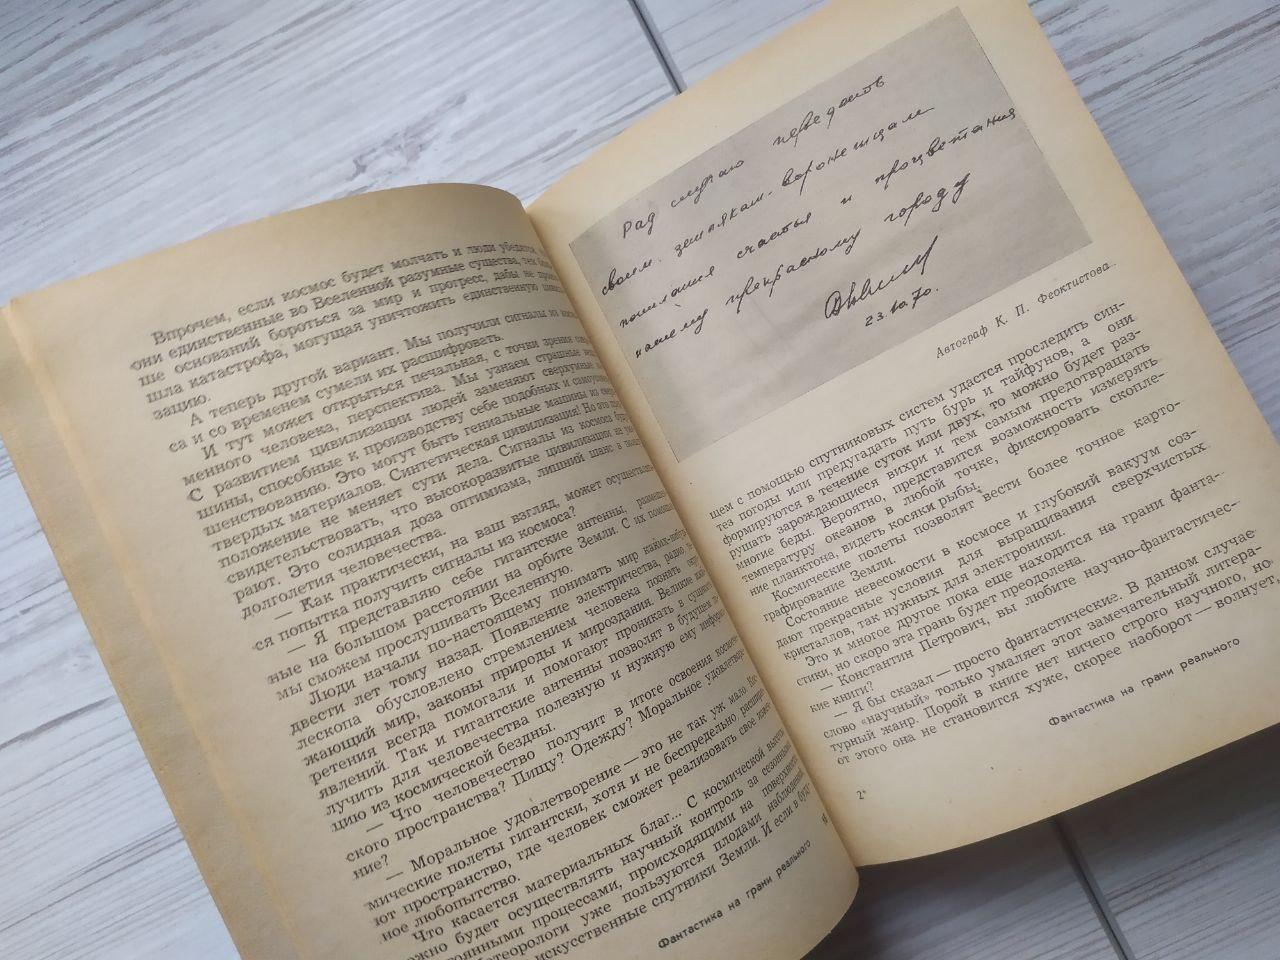 Впрочем, если космос будет молчать и люди убедятся, что
они единственные во Вселенной разумные существа, тем боль-
ше оснований бороться за мир и прогресс, дабы не произо-
шла катастрофа, могущая уничтожить единственную цивили-
зацию.
А теперь другой вариант. Мы получили сигналы из космо-
са и со временем сумели их расшифровать.
И тут может открыться печальная, с точки зрения совре-
менного человека, перспектива. Мы узнаем страшные вещи.
С развитием цивилизации людей заменяют сверхумные ма-
шины, способные к производству себе подобных и самоусовер-
шенствованию. Это могут быть гениальные машины из сверх-
твердых материалов. Синтетическая цивилизация! Но это пред-
положение не меняет сути дела. Сигналы из космоса будут
свидетельствовать, что высокоразвитые цивилизации не уми-
рают. Это солидная доза оптимизма, лишний шанс в пользу
долголетия человечества.
— Как практически, на ваш взгляд, может осуществить-
ся попытка получить сигналы из космоса?
— Я представляю себе гигантские антенны, размещен-
ные на большом расстоянии на орбите Земли. С их помощью
мы сможем прослушивать Вселенную.
Люди начали по-настоящему понимать мир каких-нибудь
двести лет тому назад. Появление электричества, радио, те-
лескопа обусловлено стремлением человека познать окру-
жающий мир, законы природы и мироздания. Великие изоб-
ретения всегда помогали и помогают проникать в существо
явлений. Так и гигантские антенны позволят в будущем по-
лучить для человечества полезную и нужную ему информа-
цию из космической бездны.
— Что человечество получит в итоге освоения космичес-
кого пространства? Пищу? Одежду? Моральное удовлетворе-
ние?
— Моральное удовлетворение — это не так уж мало. Кос-
мические полеты гигантски, хотя и не беспредельно, расширя-
ют пространство, где человек сможет реализовать свое извеч-
ное любопытство.
Что касается материальных благ... С космической высоты
можно будет осуществлять научный контроль за сезонными
постоянными процессами, происходящими на поверхности
Метеорологи уже пользуются плодами наблюдений
искусственные спутники Земли. И если в буду-
Фантастика на грани реального
19
Рад случаю передать
своим землякам-воронежцам
пожелания счастья и процветания
нашему прекрасному городу
23.10.70.
Автограф К. П. Феоктистова.
щем с помощью спутниковых систем удастся проследить син-
тез погоды или предугадать путь бурь и тайфунов, а они
формируются в течение суток или двух, то можно будет раз-
рушать зарождающиеся вихри и тем самым предотвращать
многие беды. Вероятно, представится возможность измерять
температуру океанов в любой точке, фиксировать скопле-
ние планктона, видеть косяки рыбы.
Космические полеты позволят вести более точное карто-
графирование Земли.
Состояние невесомости в космосе и глубокий вакуум соз-
дают прекрасные условия для выращивания сверхчистых
кристаллов, так нужных для электроники.
Это и многое другое пока еще находится на грани фанта-
стики, но скоро эта грань будет преодолена.
— Константин Петрович, вы любите научно-фантастичес-
кие книги?
— Я бы сказал — просто фантастические. В данном случае
слово «научный» только умаляет этот замечательный литера-
турный жанр. Порой в книге нет ничего строго научного, но
от этого она не становится хуже, скорее наоборот — волнует,
Фантастика на грани реального
2*